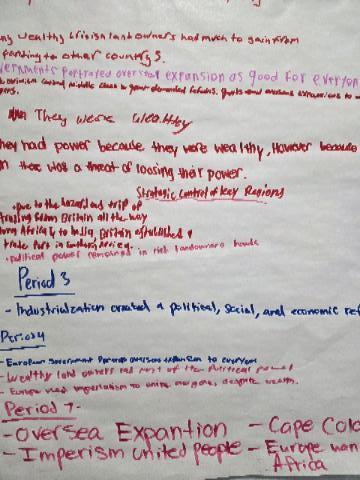 ny wealthy british land owners had much to gain from
expanding to other countrys.
vernments portrayed oversea expansion as good for everyon
middle class
They were wealthy
hey had power because they were wealthy, However because
there was a threat of loosing their power.
Strategic Control of Key Regions
• Due to the hazardous trip of
traveling from Britain all the way
Africa & to India, Britain established a
trade Port in Southern Africa.
• Political power remained in rich landowners hands
Period 3
- Industrialization created a political, social, and economic ref
Period 4
- European Government Portrayed overseas expansion to everyone
- Wealthy land owners had most of the Political power
- Europe used imperialism to unite despite wealth.
Period 7-
- Oversea Expantion - Cape Colo
- Imperism united people - Europe wan
Africa